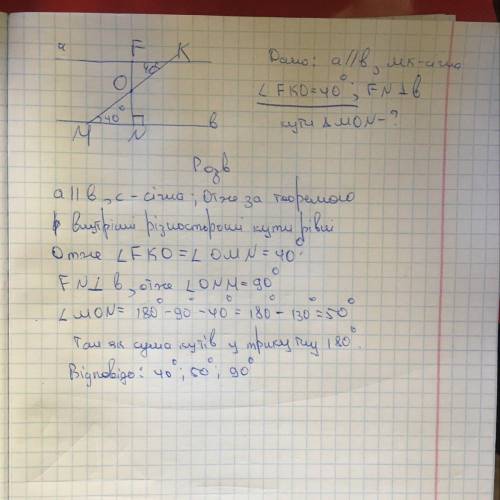 a F K
Дано: a||b, MK-січна
O 40°
∠FKO=40°; FN⊥b
40°
M N b
кути ΔMON-?
Розв
a||b, c-січна; Отже за теоремою
внутрішні різносторонні кути рівні
Отже ∠FKO=∠OMN=40°
FN⊥b, отже ∠ONM=90°
∠MON= 180°-90°-40°=180°-130°=50°
Так як сума кутів у трикутнику 180°.
Відповідь: 40°; 50°; 90°